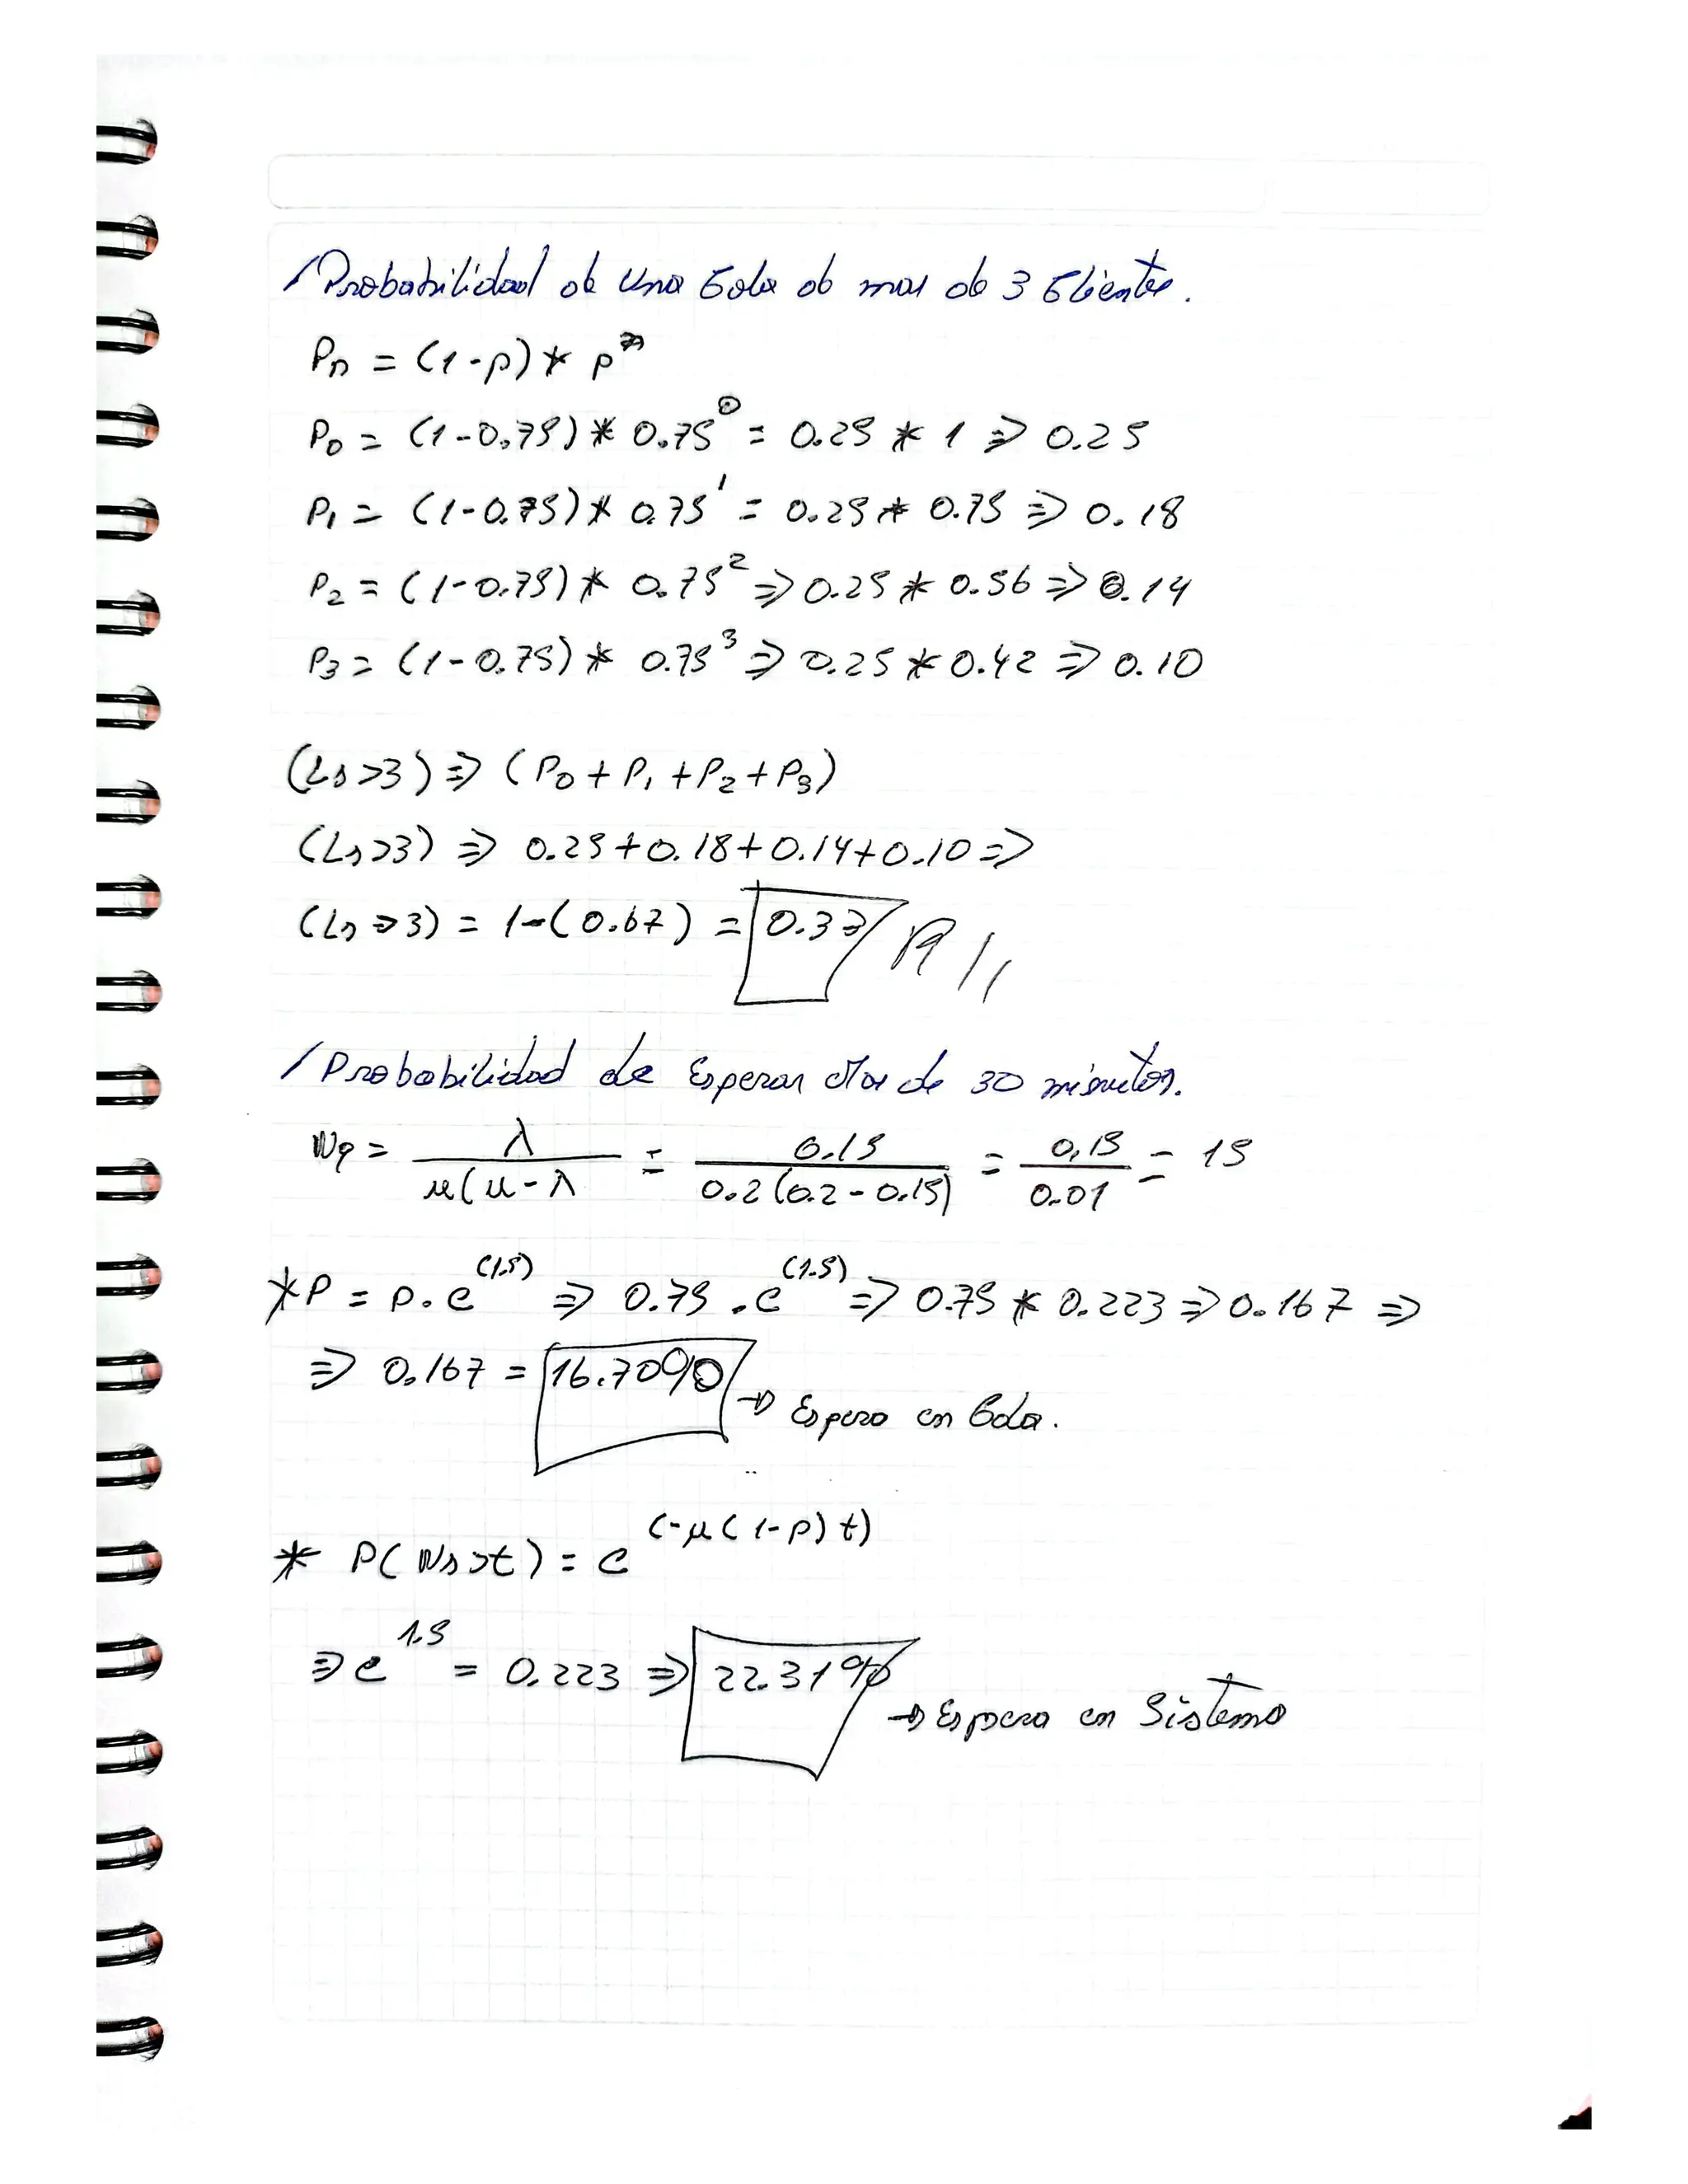 Probabilidad de una Cola de mas de 3 Clientes.
Pn = (1-p) * p^n
P0 = (1-0.75) * 0.75^0 = 0.25 * 1 => 0.25
P1 = (1-0.75) * 0.75^1 = 0.25 * 0.75 => 0.18
P2 = (1-0.75) * 0.75^2 => 0.25 * 0.56 => 0.14
P3 = (1-0.75) * 0.75^3 => 0.25 * 0.42 => 0.10
(Ls >3) => (P0 + P1 + P2 + P3)
(Ls >3) => 0.25+0.18+0.14+0.10 =>
(Ls => 3) = 1-(0.67) = 0.33 R//
/ Probabilidad de Esperar Mas de 30 minutos.
Wq = λ / μ(μ-λ = 0.15 / 0.2(0.2-0.15) = 0,15 / 0.01 = 15
* P = p.e^(1.5) => 0.75 . e^(1.5) => 0.75 * 0.223 => 0.167 =>
=> 0.167 = 16.70% → Espera en Cola.
* P(Ws>t) = e^(-μ(1-p)t)
=> e^1.5 = 0.223 => 22.31% → Espera en Sistema